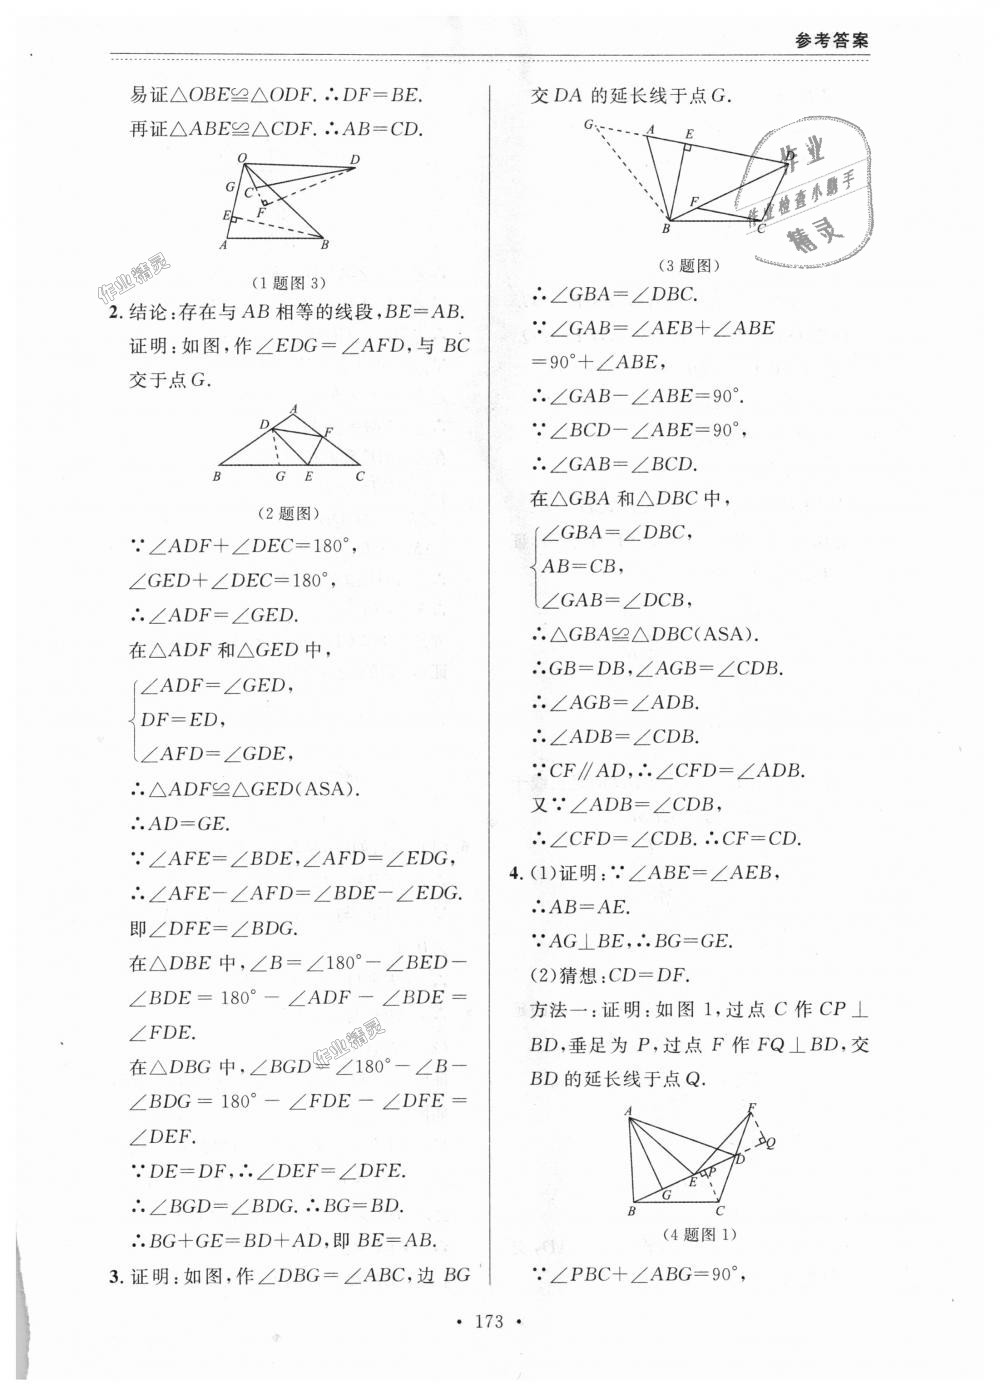 参考答案
易证△OBE≌△ODF.∴DF=BE.
再证△ABE≌△CDF.∴AB=CD.
O
D
G
C
F
E
A
B
(1题图3)
2. 结论:存在与AB相等的线段,BE=AB.
证明:如图,作∠EDG=∠AFD,与BC
交于点G.
A
D
F
B
G
E
C
(2题图)
∵∠ADF+∠DEC=180°,
∠GED+∠DEC=180°,
∴∠ADF=∠GED.
在△ADF和△GED中,
∠ADF=∠GED,
DF=ED,
∠AFD=∠GDE,
∴△ADF≌△GED(ASA).
∴AD=GE.
∵∠AFE=∠BDE,∠AFD=∠EDG,
∴∠AFE-∠AFD=∠BDE-∠EDG.
即∠DFE=∠BDG.
在△DBE中,∠B=∠180°-∠BED-
∠BDE=180°-∠ADF-∠BDE=
∠FDE.
在△DBG中,∠BGD=∠180°-∠B-
∠BDG=180°-∠FDE-∠DFE=
∠DEF.
∵DE=DF,∴∠DEF=∠DFE.
∴∠BGD=∠BDG.∴BG=BD.
∴BG+GE=BD+AD,即BE=AB.
3. 证明:如图,作∠DBG=∠ABC,边BG
交DA的延长线于点G.
G
A
E
D
F
B
C
(3题图)
∴∠GBA=∠DBC.
∵∠GAB=∠AEB+∠ABE
=90°+∠ABE,
∴∠GAB-∠ABE=90°.
∵∠BCD-∠ABE=90°,
∴∠GAB=∠BCD.
在△GBA和△DBC中,
∠GBA=∠DBC,
AB=CB,
∠GAB=∠DCB,
∴△GBA≌△DBC(ASA).
∴GB=DB,∠AGB=∠CDB.
∴∠AGB=∠ADB.
∴∠ADB=∠CDB.
∵CF∥AD,∴∠CFD=∠ADB.
又∵∠ADB=∠CDB,
∴∠CFD=∠CDB.∴CF=CD.
4. (1)证明:∵∠ABE=∠AEB,
∴AB=AE.
∵AG⊥BE,∴BG=GE.
(2)猜想:CD=DF.
方法一:证明:如图1,过点C作CP⊥
BD,垂足为P,过点F作FQ⊥BD,交
BD的延长线于点Q.
A
F
Q
D
E
P
G
B
C
(4题图1)
∵∠PBC+∠ABG=90°,
• 173 •
作业
作业检查小助手
精灵
作业精灵
作业精灵